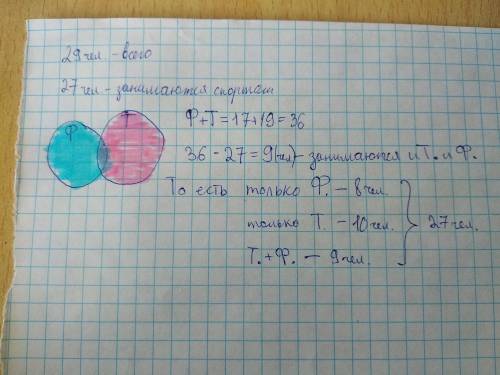 29 чел. - всего
27 чел - занимаются спортом
Ф Т
Ф+Т = 17+19 = 36
36 - 27 = 9(чел) - занимаются и Т. и Ф.
То есть только Ф. - 8 чел.
только Т. - 10 чел. } 27 чел.
Т. + Ф. - 9 чел.